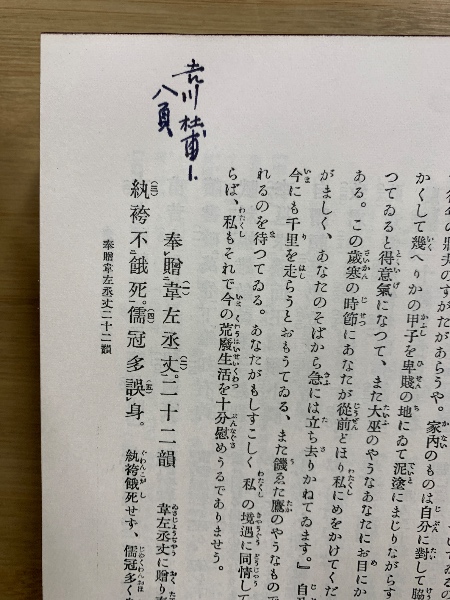 吉川 杜甫 上
八頁
かくして幾へりかの甲子を卑賤の地にゐて泥塗にまじりながらす
つてゐると得意氣になつて、また大巫のやうなあなたにお目にか
ある。この歲寒の時節にあなたが從前どほり私にめをかけてくだ
がましく、あなたのそばから急には立ち去りかねてゐます。』自
今にも千里を走らうとおもうてゐる、また饑ゑた鷹のやうなもので
れるのを待つてゐる。あなたがもしすこしく私の境遇に同情して
らば、私もそれで今の荒廢生活を十分慰めうるでありませう。
奉贈韋左丞丈二十二韻
韋左丞丈に贈り
紈袴不餓死。儒冠多誤身。
紈袴餓死せず、儒冠多く
奉贈韋左丞丈二十二韻